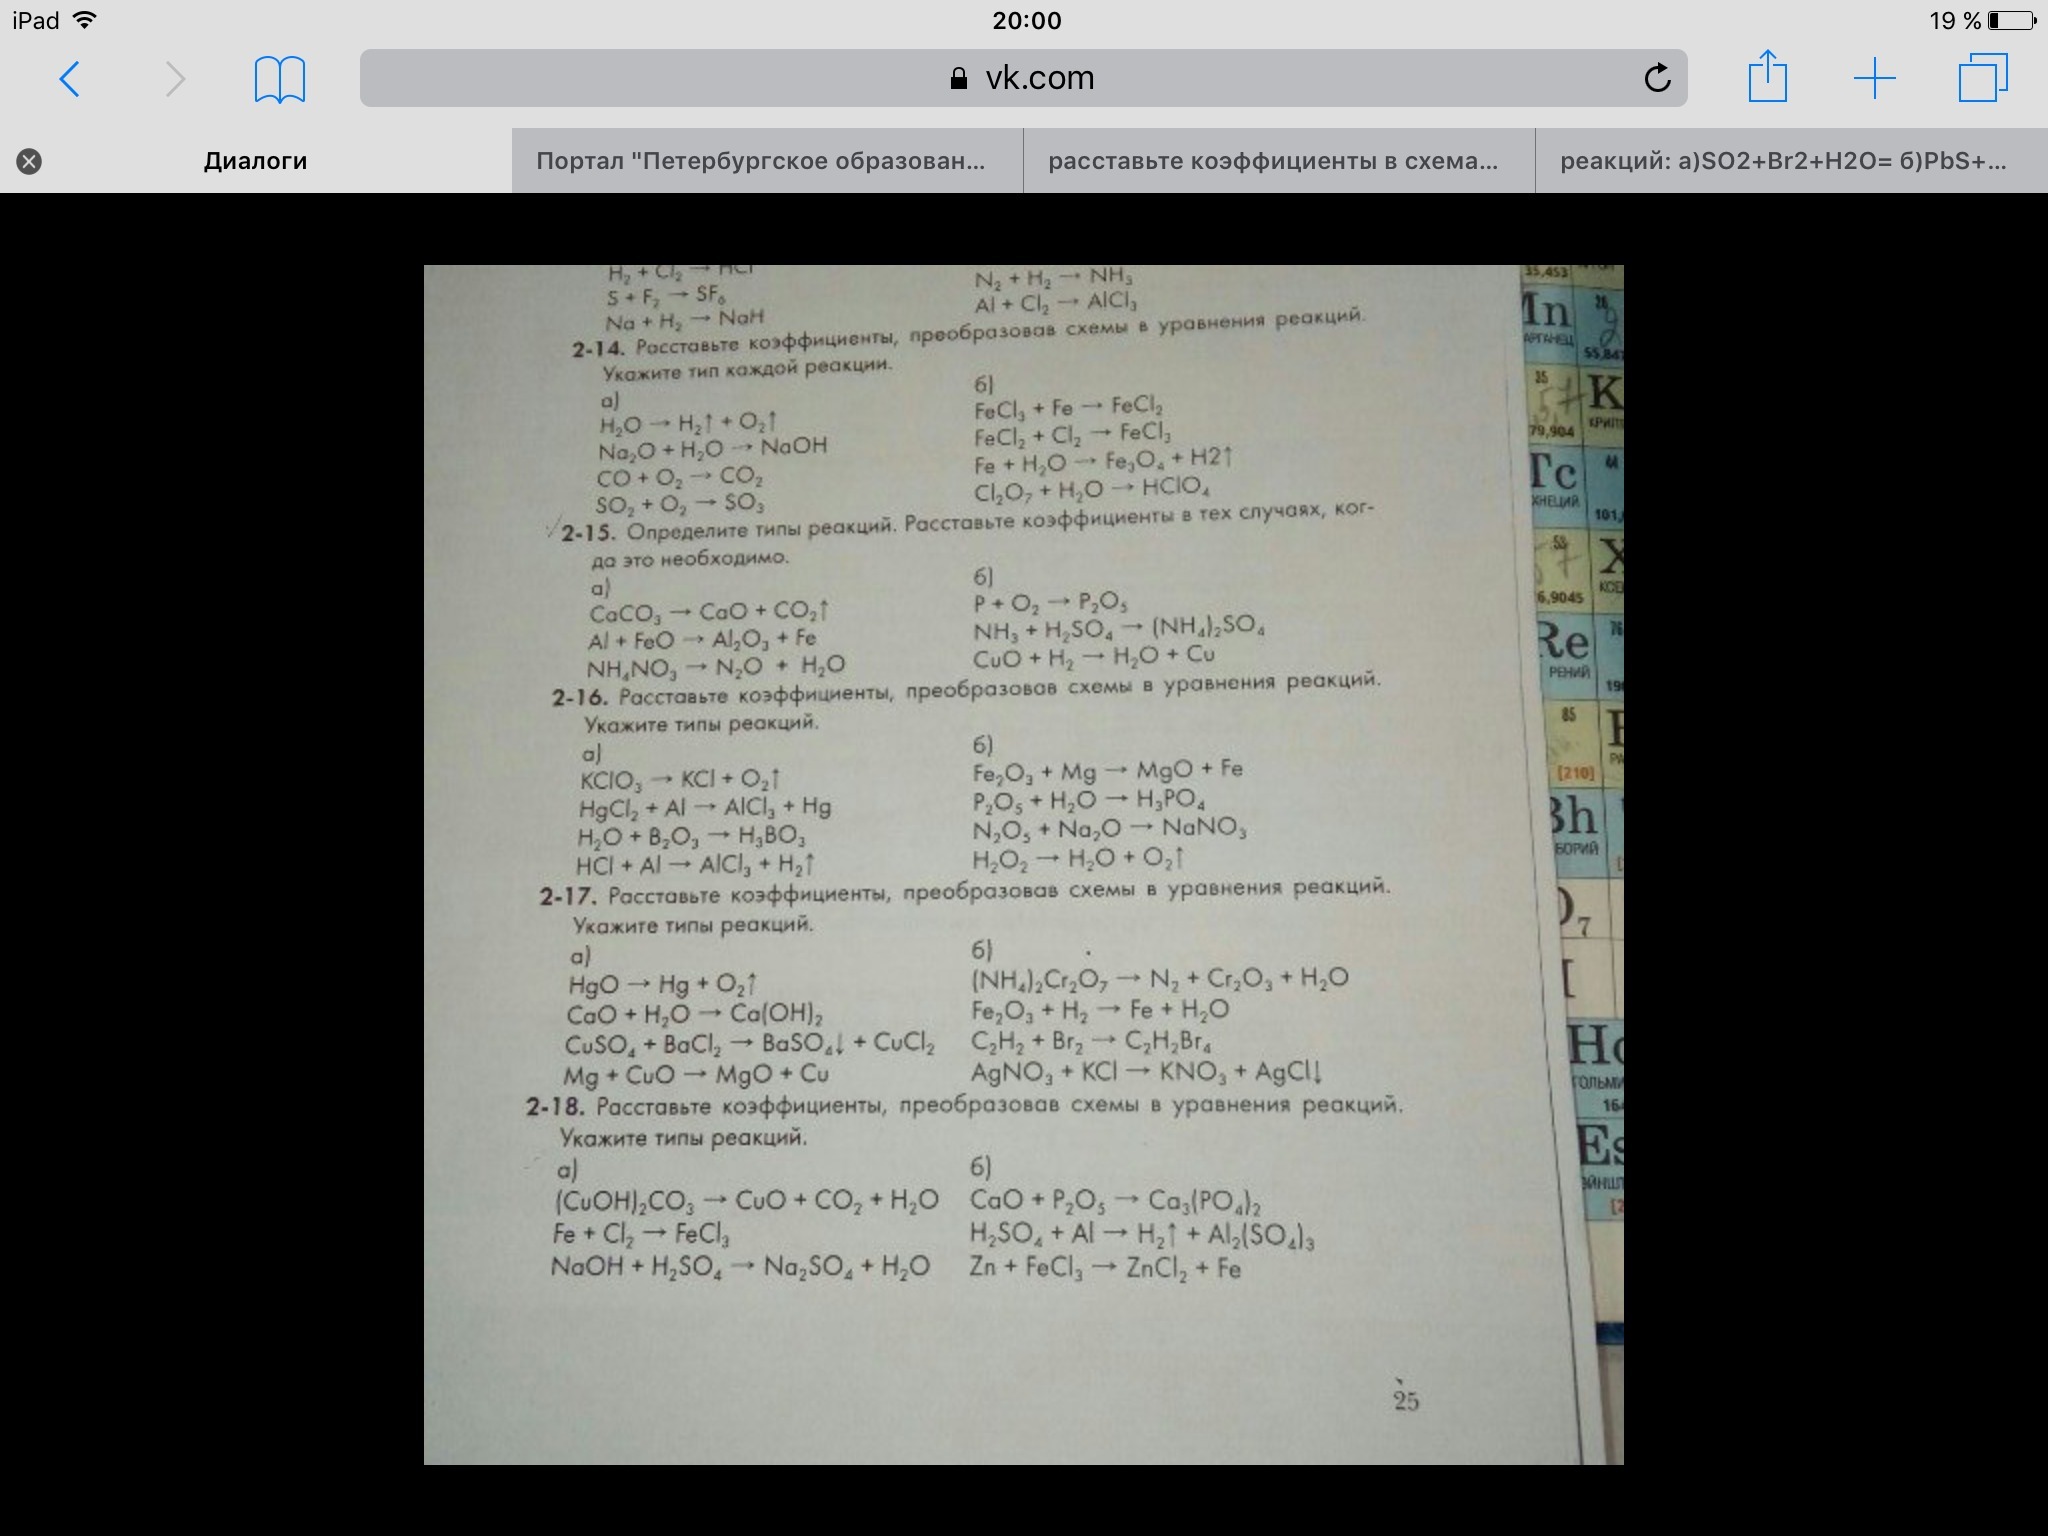 iPad 20:00 19 %
vk.com
Диалоги
Портал "Петербургское образован...
расставьте коэффициенты в схема...
реакций: а)SO2+Br2+H2O= б)PbS+...
H₂ + Cl₂ → HCl
S + F₂ → SF₆
Na + H₂ → NaH
N₂ + H₂ → NH₃
Al + Cl₂ → AlCl₃
2-14. Расставьте коэффициенты, преобразовав схемы в уравнения реакций.
Укажите тип каждой реакции.
а)
H₂O → H₂↑ + O₂↑
Na₂O + H₂O → NaOH
CO + O₂ → CO₂
SO₂ + O₂ → SO₃
б)
FeCl₃ + Fe → FeCl₂
FeCl₂ + Cl₂ → FeCl₃
Fe + H₂O → Fe₃O₄ + H2↑
Cl₂O₇ + H₂O → HClO₄
2-15. Определите типы реакций. Расставьте коэффициенты в тех случаях, ког-
да это необходимо.
а)
CaCO₃ → CaO + CO₂↑
Al + FeO → Al₂O₃ + Fe
NH₄NO₃ → N₂O + H₂O
б)
P + O₂ → P₂O₅
NH₃ + H₂SO₄ → (NH₄)₂SO₄
CuO + H₂ → H₂O + Cu
2-16. Расставьте коэффициенты, преобразовав схемы в уравнения реакций.
Укажите типы реакций.
а)
KClO₃ → KCl + O₂↑
HgCl₂ + Al → AlCl₃ + Hg
H₂O + B₂O₃ → H₃BO₃
HCl + Al → AlCl₃ + H₂↑
б)
Fe₂O₃ + Mg → MgO + Fe
P₂O₅ + H₂O → H₃PO₄
N₂O₅ + Na₂O → NaNO₃
H₂O₂ → H₂O + O₂↑
2-17. Расставьте коэффициенты, преобразовав схемы в уравнения реакций.
Укажите типы реакций.
а)
HgO → Hg + O₂↑
CaO + H₂O → Ca(OH)₂
CuSO₄ + BaCl₂ → BaSO₄↓ + CuCl₂
Mg + CuO → MgO + Cu
б)
(NH₄)₂Cr₂O₇ → N₂ + Cr₂O₃ + H₂O
Fe₂O₃ + H₂ → Fe + H₂O
C₂H₂ + Br₂ → C₂H₂Br₄
AgNO₃ + KCl → KNO₃ + AgCl↓
2-18. Расставьте коэффициенты, преобразовав схемы в уравнения реакций.
Укажите типы реакций.
а)
(CuOH)₂CO₃ → CuO + CO₂ + H₂O
Fe + Cl₂ → FeCl₃
NaOH + H₂SO₄ → Na₂SO₄ + H₂O
б)
CaO + P₂O₅ → Ca₃(PO₄)₂
H₂SO₄ + Al → H₂↑ + Al₂(SO₄)₃
Zn + FeCl₃ → ZnCl₂ + Fe
25
35,453
26
55,847
35
79,904
Tc
44
53
Re
РЕНИЙ
76
85
[210]
Bh
БОРИЙ
Es